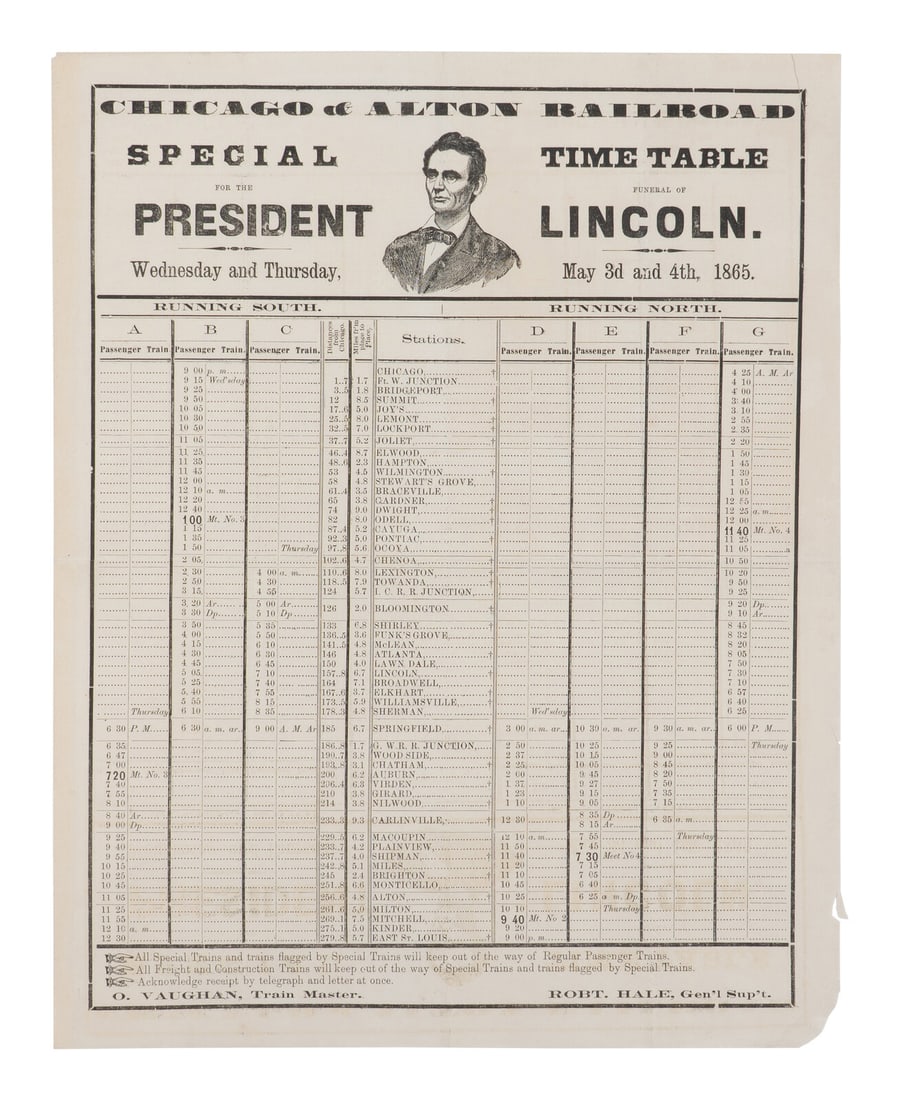 CHICAGO & ALTON RAILROAD
SPECIAL TIME TABLE
FOR THE FUNERAL OF
PRESIDENT LINCOLN.
Wednesday and Thursday, May 3d and 4th, 1865.
RUNNING SOUTH. RUNNING NORTH.
A B C Distances from Chicago. Miles from place to Place. Stations. D E F G
Passenger Train. Passenger Train. Passenger Train. Passenger Train. Passenger Train. Passenger Train. Passenger Train.
9 00 p. m. CHICAGO, † 4 25 A. M. Ar
9 15 Wed'sday 1..7 1.7 Ft. W. JUNCTION, 4 10
9 25 3..5 1.8 BRIDGEPORT, 4 00
9 50 12 8.5 SUMMIT † 3 40
10 05 17..6 5.0 JOY'S 3 10
10 30 25..5 8.0 LEMONT † 2 55
10 50 32..5 7.0 LOCKPORT † 2 35
11 05 37..7 5.2 JOLIET † 2 20
11 25 46..4 8.7 ELWOOD, 1 50
11 35 48..6 2.3 HAMPTON, 1 45
11 45 53 4.5 WILMINGTON † 1 30
12 00 58 4.8 STEWART'S GROVE, 1 15
12 10 a. m. 61..4 3.5 BRACEVILLE, 1 05
12 20 65 3.8 GARDNER, † 12 55
12 40 74 9.0 DWIGHT, † 12 25 a. m.
1 00 Mt. No. 82 8.0 ODELL, † 12 00
1 15 87..4 5.2 CAYUGA, 11 40 Mt. No. 4
1 35 92..3 5.0 PONTIAC, † 11 25
1 50 Thursday 97..8 5.6 OCOYA, 11 05
2 05 102..6 4.7 CHENOA, † 10 50
2 30 4 00 a. m. 110..6 8.0 LEXINGTON, † 10 20
2 50 4 30 118..5 7.9 TOWANDA, † 9 50
3 15 4 55 124 5.7 I. C. R. R. JUNCTION, 9 25
3 20 Ar 5 00 Ar 126 2.0 BLOOMINGTON † 9 20 Dp
3 30 Dp 5 10 Dp 9 10 Ar
3 50 5 35 133 6.8 SHIRLEY, † 8 45
4 00 5 50 136..5 3.6 FUNK'S GROVE, 8 32
4 15 6 10 141..5 4.8 McLEAN, † 8 20
4 30 6 30 146 4.8 ATLANTA, † 8 05
4 45 6 45 150 4.0 LAWN DALE, 7 50
5 05 7 10 157..8 6.7 LINCOLN, † 7 30
5 25 7 40 164 7.1 BROADWELL, 7 10
5 40 7 55 167..6 3.7 ELKHART † 6 57
5 55 8 15 173..5 5.9 WILLIAMSVILLE, † 6 40
Thursday 6 10 8 35 178..3 4.8 SHERMAN, Wed'sday 6 25
6 30 P. M. 6 30 a. m. ar. 9 00 A. M. Ar 185 6.7 SPRINGFIELD † 3 00 a. m. ar. 10 30 a. m. ar. 9 30 a. m. ar. 6 00 P. M.
6 35 186..8 1.7 G. W. R. R. JUNCTION, 2 50 10 25 9 25 Thursday
6 47 190..7 3.8 WOOD SIDE, 2 37 10 15 9 00
7 00 193..8 3.1 CHATHAM, † 2 25 10 05 8 45
7 20 Mt. No. 3 200 6.2 AUBURN, 2 00 9 45 8 20
7 40 206..4 6.3 VIRDEN, † 1 37 9 27 7 50
7 55 210 3.8 GIRARD, 1 23 9 15 7 35
8 10 214 3.8 NILWOOD † 1 10 9 05 7 15
8 40 Ar 9.3 CARLINVILLE, † 12 30 8 35 Dp 6 35 a. m.
9 00 Dp 8 15 Ar
9 25 229..5 6.2 MACOUPIN 12 10 a. m. 7 55 Thursday
9 40 233..7 4.2 PLAINVIEW, 11 50 7 45
9 55 237..7 4.0 SHIPMAN, † 11 40 7 30 Meet No 4
10 15 242..8 5.1 MILES 11 20 7 15
10 25 245 2.4 BRIGHTON † 11 10 7 05
10 45 251..8 6.6 MONTICELLO, 10 45 6 40
11 05 256..6 4.8 ALTON † 10 25 6 25 a. m. Dp.
11 25 261..6 5.0 MILTON 10 10 Thursday
11 55 269..1 7.5 MITCHELL † 9 40 Mt. No 2
12 10 a. m. 275..1 5.0 KINDER 9 20
12 30 279..8 5.7 EAST ST. LOUIS † 9 00 p. m.
All Special Trains and trains flagged by Special Trains will keep out of the way of Regular Passenger Trains.
All Freight and Construction Trains will keep out of the way of Special Trains and trains flagged by Special Trains.
Acknowledge receipt by telegraph and letter at once.
O. VAUGHAN, Train Master. ROBT. HALE, Gen'l Sup't.